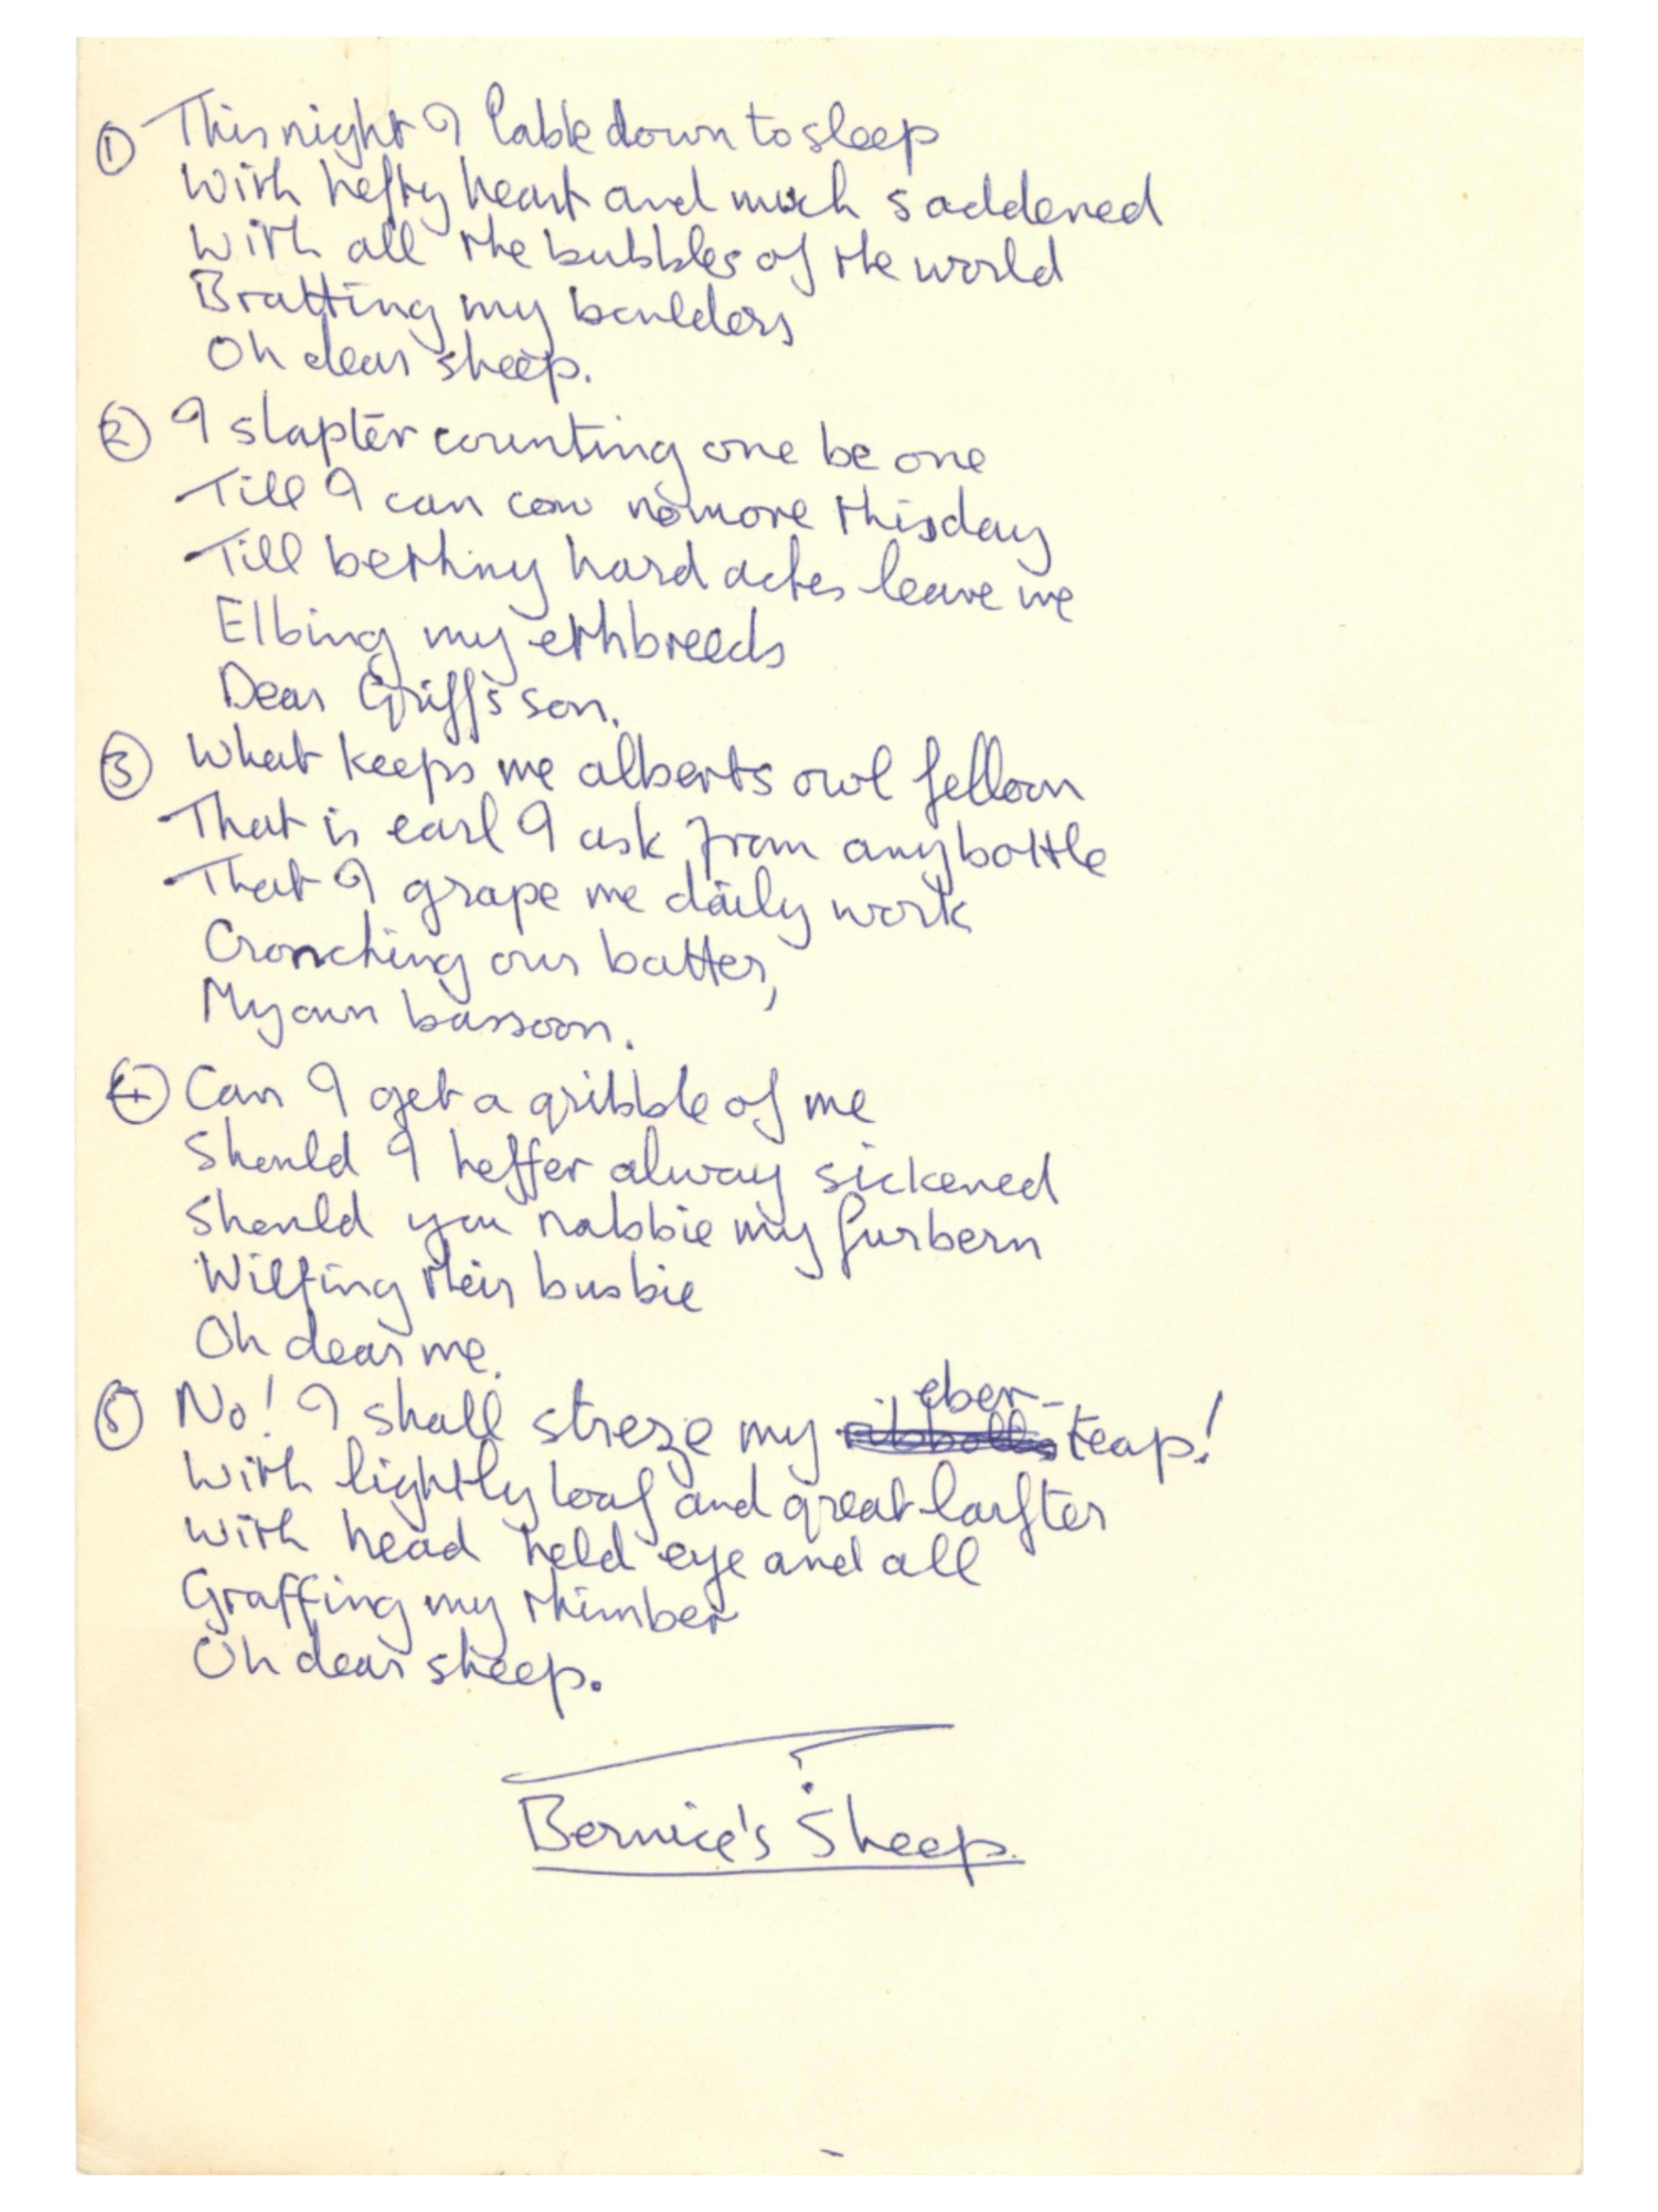 ① This night I lable down to sleep
With hefty heart and much saddened
With all the bubbles of the world
Bratting my boulders
Oh dear sheep.
② I slapter counting one be one
Till I can cow nomore thisday
Till bethny hard aches leave me
Elbing my ethbreeds
Dear Griff's son.
③ What keeps me alberts owl felloon
That is earl I ask from anybottle
That I grape me daily work
Cronching our batter,
My own bassoon.
④ Can I get a gribble of me
Should I heffer alway sickened
Should you nabbie my furbern
Wilfing their busbie
Oh dear me.
eber-
⑤ No! I shall streze my teap!
With lightly loaf and great larfter
With head held eye and all
Graffing my thimber
Oh dear sheep.
Bernice's Sheep.